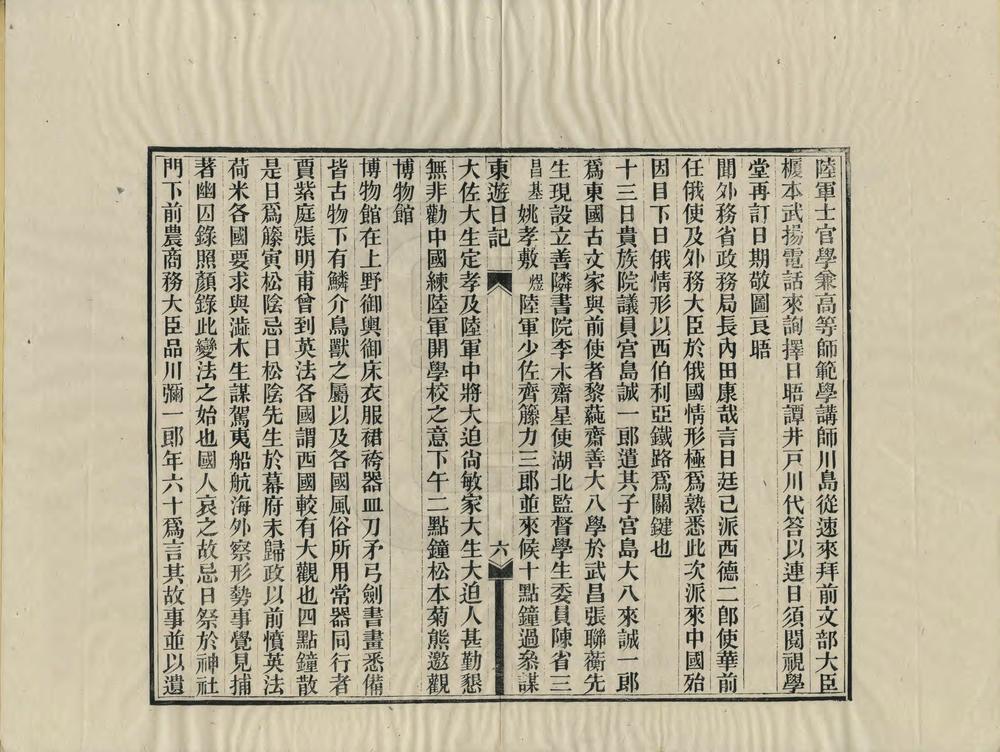 陸軍士官學兼高等師範學講師川島從速來拜前文部大臣
榎本武揚電話來詢擇日晤譚井戸川代答以連日須閱視學
堂再訂日期敬圖良晤
聞外務省政務局長內田康哉言日廷已派西德二郎使華前
任俄使及外務大臣於俄國情形極爲熟悉此次派來中國殆
因目下日俄情形以西伯利亞鐵路爲關鍵也
十三日貴族院議員宮島誠一郎遣其子宮島大八來誠一郎
爲東國古文家與前使者黎蒓齋善大八學於武昌張聯蘅先
生現設立善隣書院李木齋星使湖北監督學生委員陳省三
昌基姚孝敷煜陸軍少佐齊籐力三郎並來候十點鐘過叅謀
東遊日記 六
大佐大生定孝及陸軍中將大迫尙敏家大生大迫人甚勤懇
無非勸中國練陸軍開學校之意下午二點鐘松本菊熊邀觀
博物館
博物館在上野御輿御床衣服裙袴器皿刀矛弓劍書畫悉備
皆古物下有鱗介鳥獸之屬以及各國風俗所用常器同行者
賈紫庭張明甫曾到英法各國謂西國較有大觀也四點鐘散
是日爲籐寅松陰忌日松陰先生於幕府未歸政以前憤英法
荷米各國要求與澁木生謀駕夷船航海外察形勢事覺見捕
著幽囚錄照顏錄此變法之始也國人哀之故忌日祭於神社
門下前農商務大臣品川彌一郎年六十爲言其故事並以遺